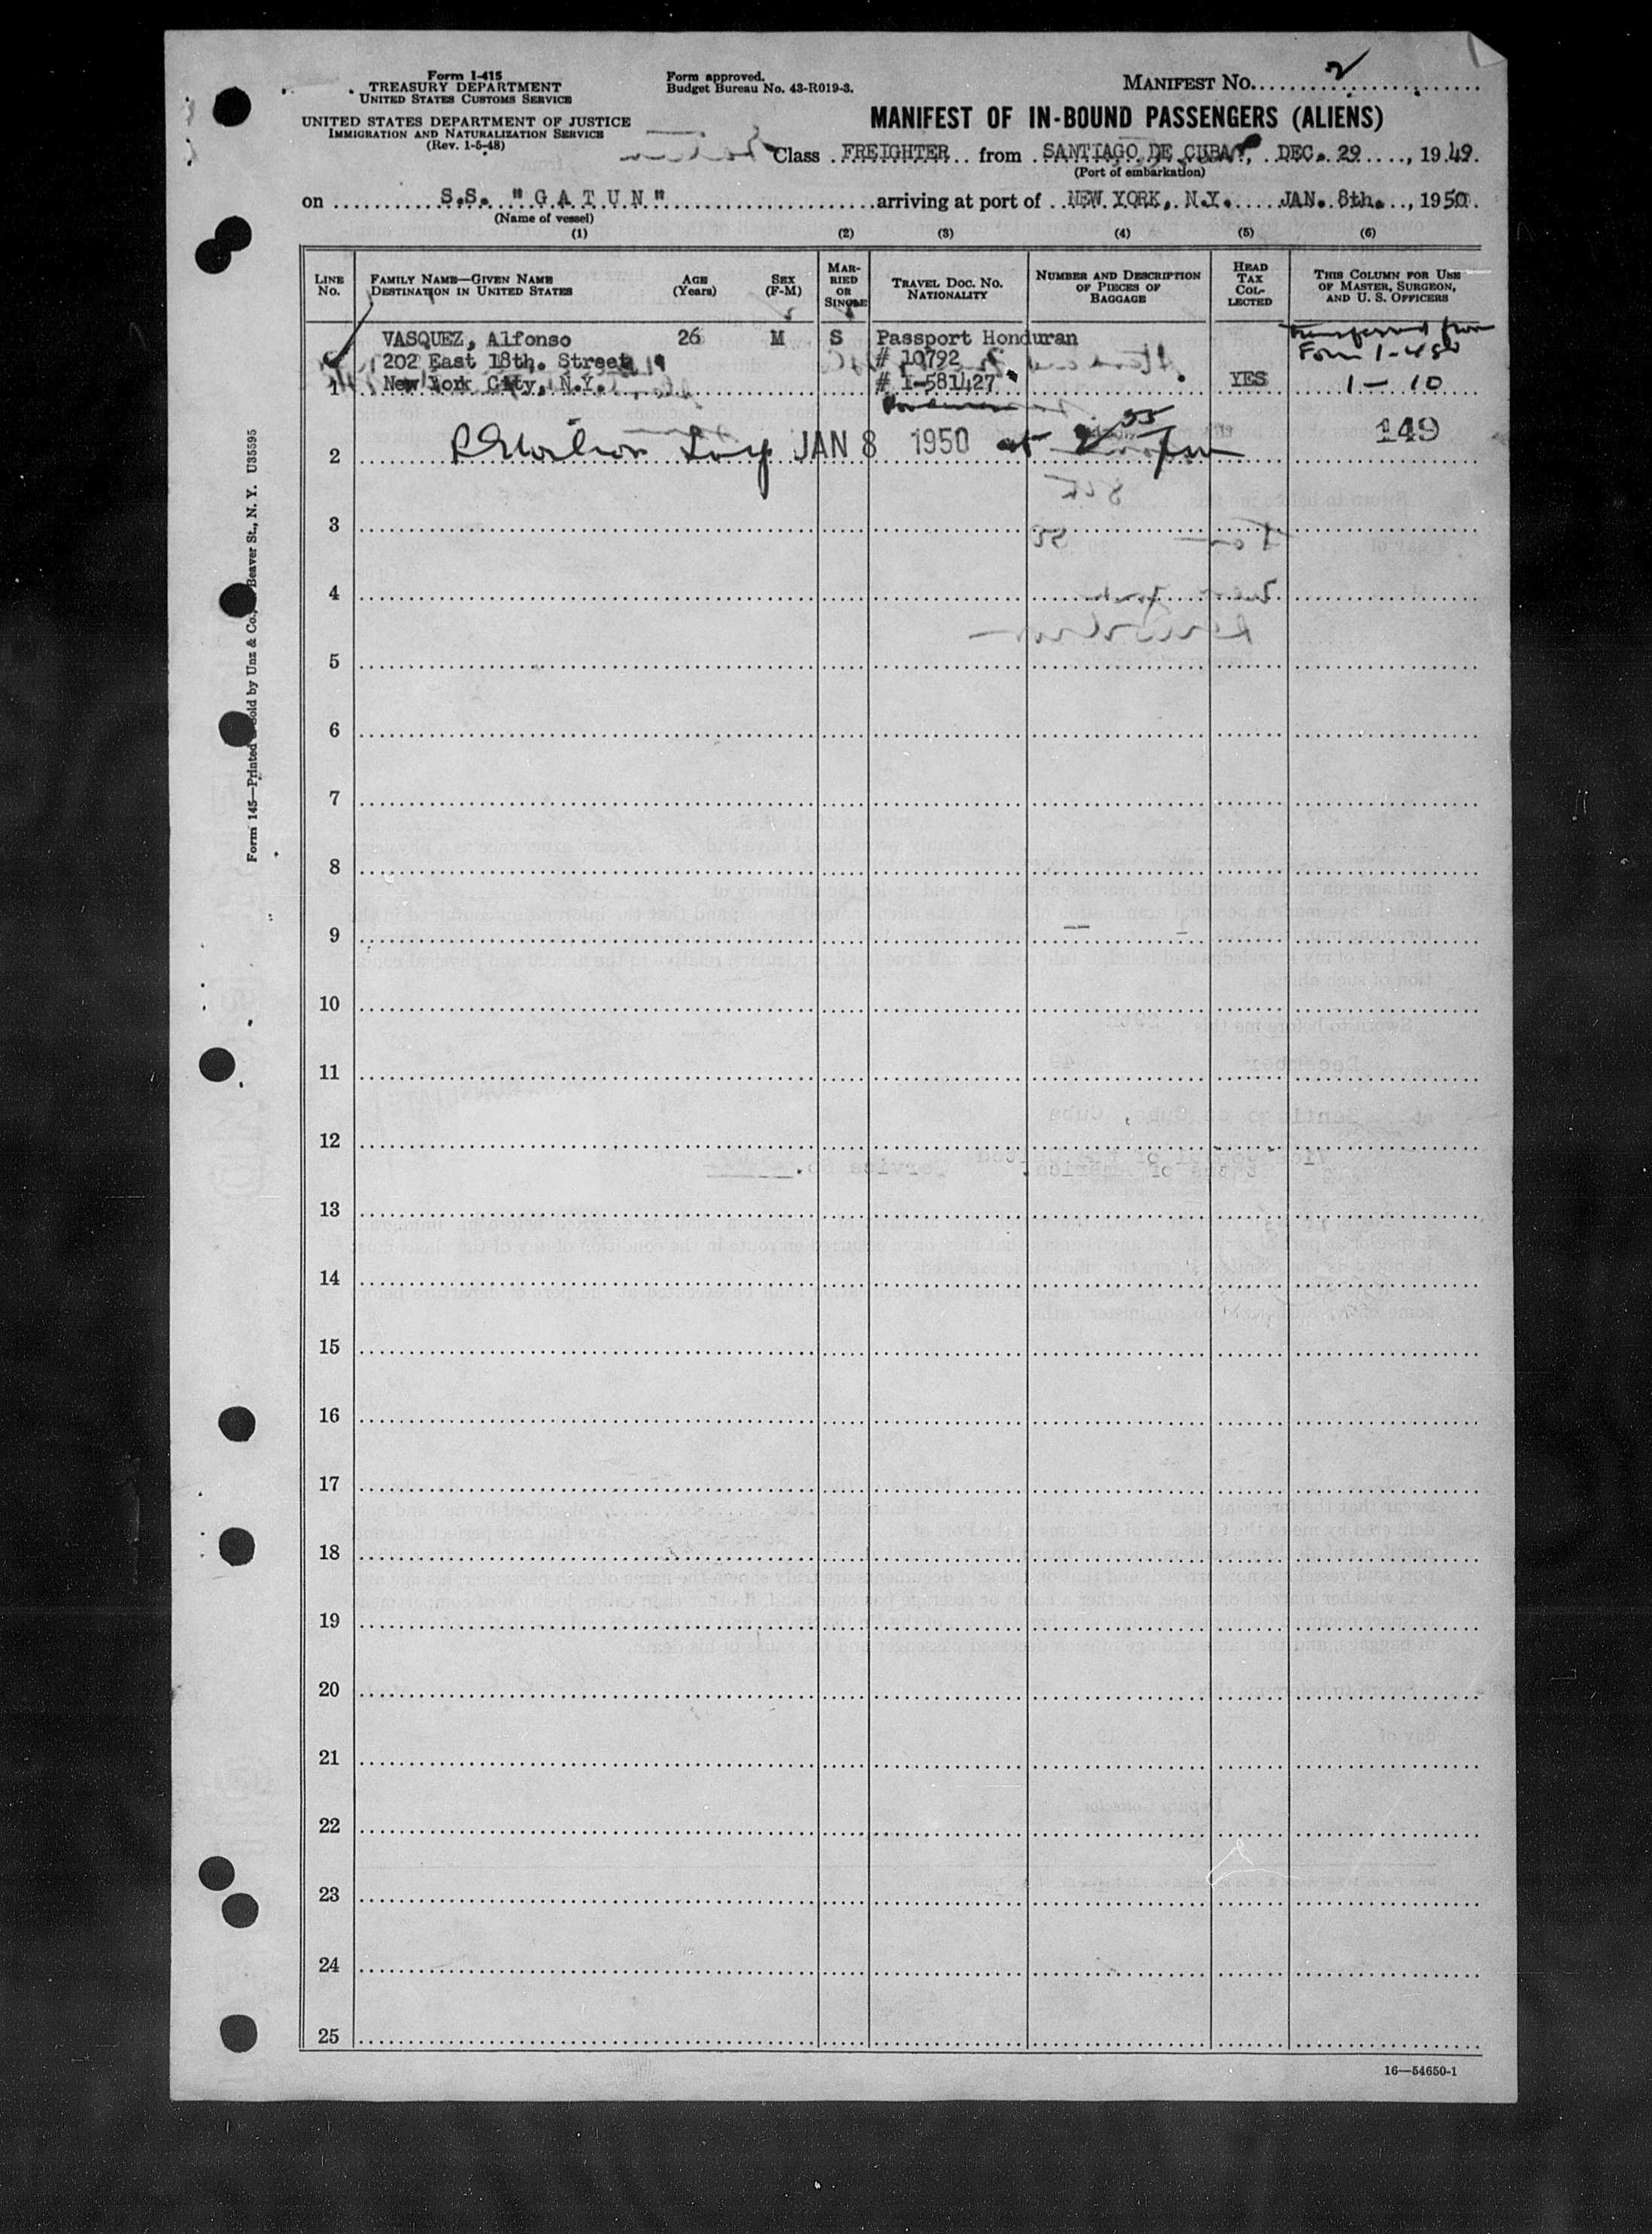 Form I-415
TREASURY DEPARTMENT
UNITED STATES CUSTOMS SERVICE
UNITED STATES DEPARTMENT OF JUSTICE
IMMIGRATION AND NATURALIZATION SERVICE
(Rev. 1-5-48)
Form approved.
Budget Bureau No. 43-R019-3.
MANIFEST No. 2
MANIFEST OF IN-BOUND PASSENGERS (ALIENS)
Class FREIGHTER from SANTIAGO DE CUBA, DEC. 29, 1949.
(Port of embarkation)
on S.S. "G A T U N" arriving at port of NEW YORK, N.Y. JAN. 8th., 1950.
(Name of vessel)
(1) (2) (3) (4) (5) (6)
LINE No.
FAMILY NAME—GIVEN NAME
DESTINATION IN UNITED STATES
AGE (Years)
SEX (F-M)
MARRIED OR SINGLE
TRAVEL DOC. NO.
NATIONALITY
NUMBER AND DESCRIPTION OF PIECES OF BAGGAGE
HEAD TAX COLLECTED
THIS COLUMN FOR USE OF MASTER, SURGEON, AND U. S. OFFICERS
VASQUEZ, Alfonso 26 M S Passport Honduran Transferred from
202 East 18th. Street # 10792 Form I-480
1 New York City, N.Y. # I-581427 YES 1 - 10
2 JAN 8 1950 at 2 55 pm 149
3
4
5
6
7
8
9
10
11
12
13
14
15
16
17
18
19
20
21
22
23
24
25
16—54650-1
Form 145—Printed Sold by Unz & Co., Beaver St., N. Y. U35595